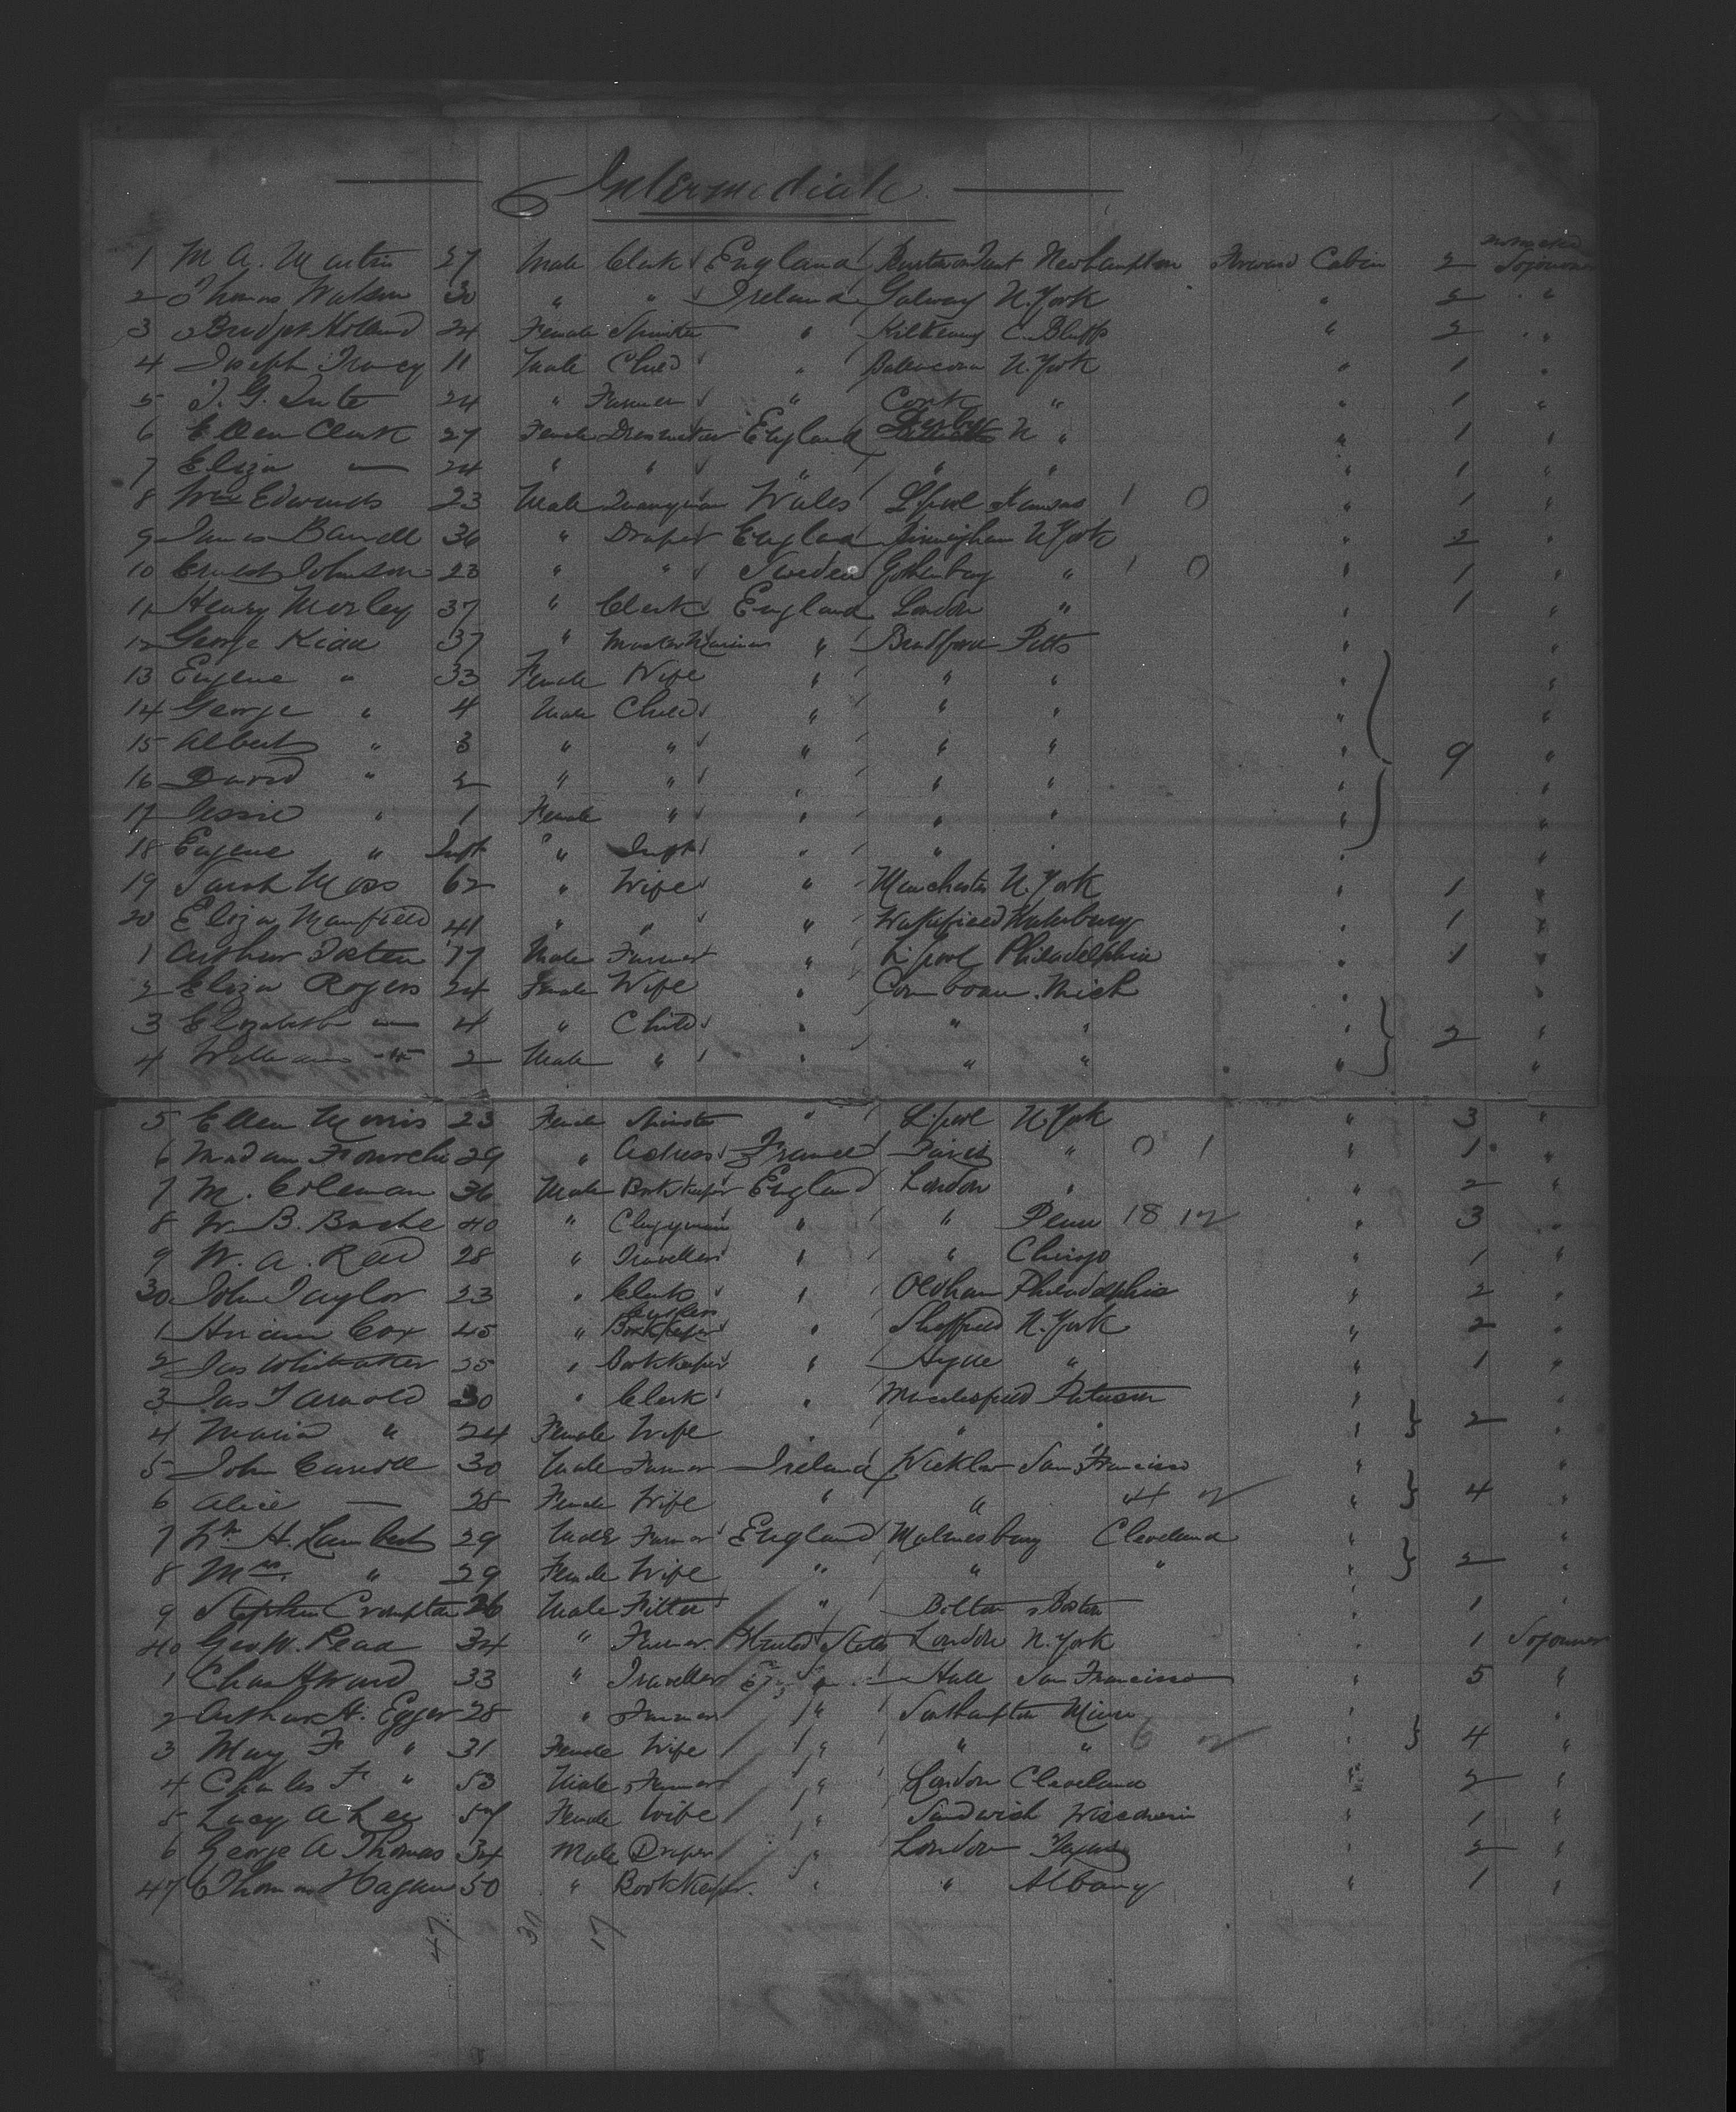 Intermediate
1 M A. Martin 27 Male Clerk England Burton on Trent Newhampton Forward Cabin 2 Sojourner
2 Thomas Watson 30 " " Ireland Galway N. York " 2 "
3 Bridget Holland 24 Female Spinster " Kilkenny C. Bluffs " 2 "
4 Joseph Tracy 11 Male Child " N. York " 1 "
5 24 " Farmer " Cork " " 1 "
6 Ellen Clark 27 Female Dressmaker England Derby N " " 1 "
7 Eliza — 24 " " " " " " 1 "
8 Wm Edwards 23 Male Quarryman Wales L'pool Kansas 1 0 " 1 "
9 James Barrell 36 " Draper England Birmingham N York " 2 "
10 Ernest Johnson 23 " " Sweden Gothenburg " 1 0 " 1
11 Henry Morley 37 " Clerk England London " " 1 "
12 George Kidd 37 " Master Mariner " Bradford Pitts " "
13 Eugene " 33 Female Wife " " " " "
14 George " 4 Male Child " " " " "
15 Albert " 3 " " " " " " 9 "
16 David " 2 " " " " " " "
17 Jessie " 1 Female " " " " " "
18 Eugene " Inft " Inft " " " " "
19 Sarah Moss 62 " Wife " Manchester N. York " 1 "
20 Eliza Manfield 41 " " " Wakefield Waterbury " 1 "
1 Arthur 17 Male Farmer " L'pool Philadelphia " 1 "
2 Eliza Rogers 24 Female Wife " Mich " "
3 Elizabeth — 4 " Child " " " " 2 "
4 William 2 Male " " " " " "
5 Ellen Morris 23 Female Spinster " L'pool N. York " 3 "
6 Madam 29 " Actress France Paris " 0 1 " 1 "
7 M. Coleman 36 Male Bookkeeper England London " " 2 "
8 W. B. Bache 40 " Clergyman " " Penn 18 12 " 3 "
9 W. A. Reed 28 " Traveller " " Chicago " 1 "
30 John Taylor 23 " Clerk " Oldham Philadelphia " 2 "
1 Hiram Cox 45 " Bookkeeper " Sheffield N. York " 2 "
2 Jas Whittaker 25 " Bookkeeper " Hyde " " 1 "
3 Jas T Arnold 30 " Clerk " Macclesfield Paterson " "
4 Maria " 24 Female Wife " " " " 2 "
5 John Carroll 30 Male Farmer Ireland Wicklow San Francisco " "
6 Alice — 28 Female Wife " " " " 4 "
7 Wm H. Lambert 29 Male Farmer England Malmesbury Cleveland " "
8 Mrs. " 29 Female Wife " " " " 2 "
9 Stephen Crompton 26 Male Fitter " Bolton Boston " 1 "
40 Geo W. Read 34 " Farmer United States London N. York " 1 Sojourner
1 Chas Award 33 " Traveller Eng Hull San Francisco " 5 "
2 Arthur H. Egger 28 " Farmer " Southampton Minn " "
3 May F " 31 Female Wife " " " 6 " 4 "
4 Charles F " 53 Male Farmer " London Cleveland " 2 "
5 Lucy A Lee 57 Female Wife " Sandwich Wisconsin " 1 "
6 George A Thomas 34 Male Draper " London " 2 "
47 Thomas Hagan 50 " Bookkeeper " " Albany " 1 "
47 30 17